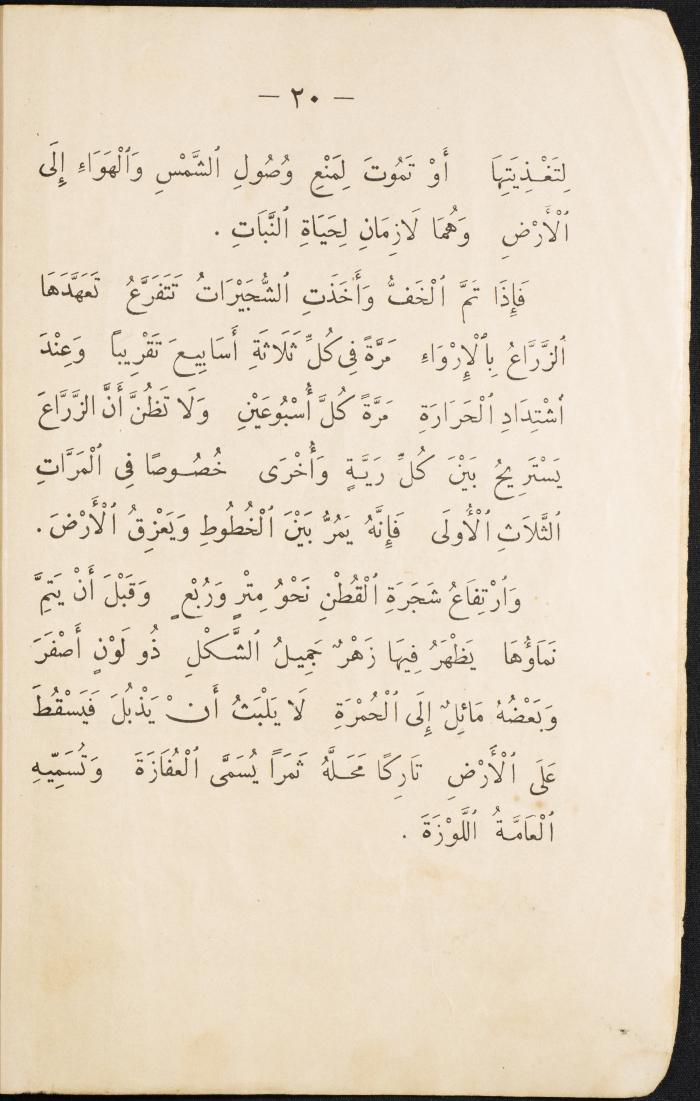 — ٢٠ —
لِتَغْذِيَتِهَا أَوْ تَمُوتَ لِمَنْعِ وُصُولِ ٱلشَّمْسِ وَٱلْهَوَاءِ إِلَى
ٱلْأَرْضِ وَهُمَا لَازِمَانِ لِحَيَاةِ ٱلنَّبَاتِ .
فَإِذَا تَمَّ ٱلْخَفُّ وَأَخَذَتِ ٱلشُّجَيْرَاتُ تَتَفَرَّعُ تَعَهَّدَهَا
ٱلزَّرَّاعُ بِٱلْإِرْوَاءِ مَرَّةً فِى كُلِّ ثَلَاثَةِ أَسَابِيعَ تَقْرِيباً وَعِنْدَ
ٱشْتِدَادِ ٱلْحَرَارَةِ مَرَّةً كُلَّ أُسْبُوعَيْنِ وَلَا تَظُنَّ أَنَّ الزَّرَّاعَ
يَسْتَرِيحُ بَيْنَ كُلِّ رَيَّةٍ وَأُخْرَى خُصُوصًا فِى ٱلْمَرَّاتِ
ٱلثَّلَاثِ ٱلْأُولَى فَإِنَّهُ يَمُرُّ بَيْنَ ٱلْخُطُوطِ وَيَعْزِقُ ٱلْأَرْضَ .
وَٱرْتِفَاعُ شَجَرَةِ ٱلْقُطْنِ نَحْوُ مِتْرٍ وَرُبْعٍ وَقَبْلَ أَنْ يَتِمَّ
نَمَاؤُهَا يَظْهَرُ فِيهَا زَهْرٌ جَمِيلُ ٱلشَّكْلِ ذُو لَوْنٍ أَصْفَرَ
وَبَعْضُهُ مَائِلٌ إِلَى ٱلْحُمْرَةِ لَا يَلْبَثُ أَنْ يَذْبُلَ فَيَسْقُطَ
عَلَى ٱلْأَرْضِ تَارِكًا مَحَلَّهُ ثَمَرًا يُسَمَّى ٱلْعُفَازَةَ وَتُسَمِّيهِ
ٱلْعَامَّةُ ٱللَّوْزَةَ .